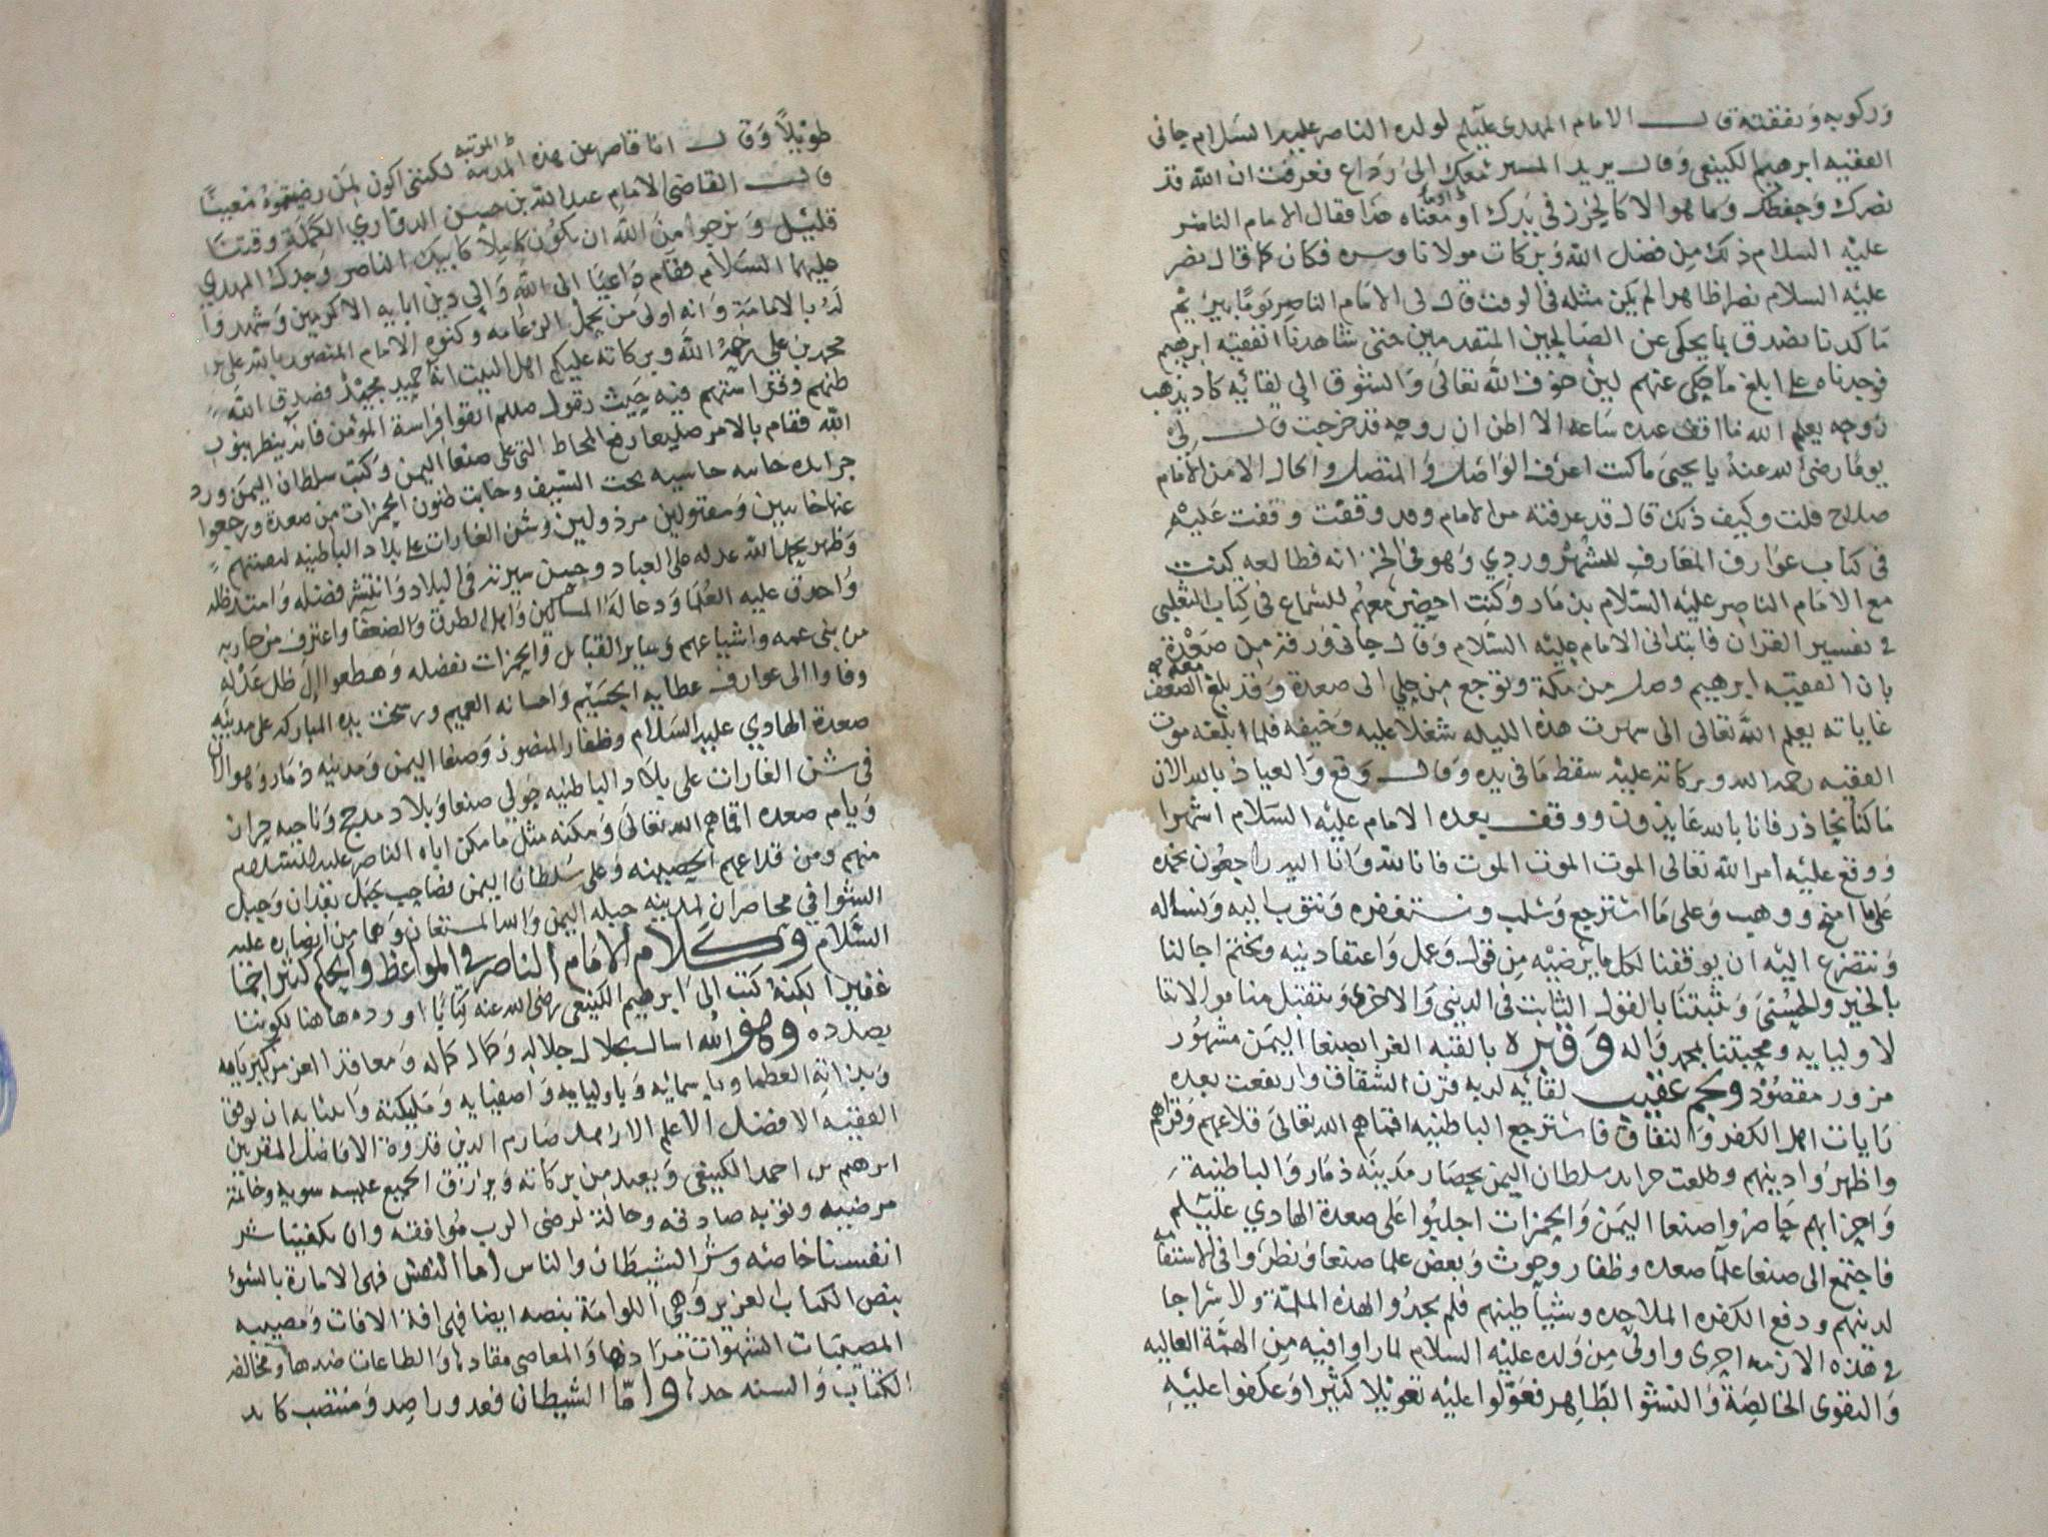 وركوبه ونفقته قال الامام المهدي عليلم لولده الناصر عليه السلام جاني
الفقيه ابرهيم الكينعي وقال يريد المسير معك الى رداع فعرفت ان الله قد
نصرك وحفظك وما هو الا كالحرز في يدك او معناه هذا فقال الامام الناصر
عليه السلام ذلك من فضل الله وبركات مولانا وسره فكان كما قال نصر
عليه السلام نصرا ظاهرا لم يكن مثله في الوقت قال لى الامام الناصر يوما
ما كدنا نصدق بما يحكى عن الصالحين المتقدمين حتى شاهدنا الفقيه ابرهيم
فوجدناه على ابلغ ما حكى عنهم لين خوف الله تعالى والشوق الى لقائه كاد يذهب
روحه يعلم الله ما اقف عنده ساعه الا اظن ان روحه قد خرجت قال لي
يوما رضى الله عنه يا يحيى ما كنت اعرف الواصل والمتصل والحال الا من الامام
صلاح قلت وكيف ذلك قال قد عرفته من الامام وقد وقفت وقفت عليه
في كتاب عوارف المعارف للشهروردي وهو في الخزانه فطالعه كنت
مع الامام الناصر عليه السلام بذمار وكنت احضر معهم للسماع في كتاب الثعلبي
في تفسير القران فابتدانى الامام عليه السلام وقال جانى ورقة من صعدة
بان الفقيه ابرهيم وصل من مكة وتوجع من حلي الى صعدة وقد بلغ معه الضعف
غاياته يعلم الله تعالى انى سهرت هذه الليله شغلا عليه وخيفه فلما ابلغته موت
الفقيه رحمه الله وبركاته عليه سقط ما في يده وقال وقع والعياذ بالله الان
ما كنا نحاذر فانا بالله عايذون ووقف بعده الامام عليه السلام اشهرا
ووقع عليه امر الله تعالى الموت الموت الموت فانا لله وانا اليه راجعون نحمده
على ما امنح ووهب وعلى ما استرجع وسلب ونستغفره ونتوب اليه ونساله
ونتضرع اليه ان يوفقنا لكل ما يرضيه من قول وعمل واعتقاد ونيه ويختم اجالنا
بالخير والحسنى ويثبتنا بالقول الثابت في الدنيى والاخرى ويتقبل منا موالاتنا
لاوليايه ومحبتنا بمحمد واله وقبره بالقبه الغرا بصنعا اليمن مشهور
مزور مقصود ونجم عقيب لقائه لربه قرن الشقاق وارتفعت بعده
رايات اهل الكفر والنفاق فاسترجع الباطنيه اقماهم الله تعالى قلاعهم وقراهم
واظهروا دينهم وطلعت جرايد سلطان اليمن بحصار مدينه ذمار والباطنية
واحزابهم حاصروا صنعا اليمن والحمزات اجلبوا على صعدة الهادي عليلم
فاجتمع الى صنعا علما صعده وظفار وحوث وبعض علما صنعا ونظروا في الاستقامه
لدينهم ودفع الكفره الملاحده وشياطينهم فلم يجدوا لهذه الملمة ولا سراجا
في هذه الازمه احرى واولى من ولده عليه السلام لما راوا فيه من الهمة العاليه
والتقوى الخالصة والنشو الطاهر فعولوا عليه تعويلا كثيرا وعكفوا عليه
طويلا وقال انا قاصر عن هذه المدرسه المرتبه لكننى اكون لمن رضيتموه معينا
قال القاضى الامام عبد الله بن حسن الدواري الكملة وقتنا
قليل ونرجوا من الله ان يكون كاملا كابيك الناصر وجدك المهدي
عليهما السلام فقام داعيا الى الله والى دين ابايه الاكرمين وشهدوا
له بالامامة وانه اولى من يحمل الزعامه وكنوه الامام المنصور بالله على بن
محمد بن على رحمة الله وبركاته عليكم اهل البيت انه حميد مجيد فصدق الله
ظنهم وفراستهم فيه حيث يقول صللم اتقوا فراسة المؤمن فانه ينظر بنور
الله فقام بالامر صليعا رفع المحاط التى على صنعا اليمن وكتب سلطان اليمن ورد
جرايده خاسه خاسيه تحت السيف وخابت ظنون الحمزات من صعدة ورجعوا
عنها خايبين ومقتولين مرذولين وشن الغارات على بلاد الباطنيه
وظهر بحمد الله عدله على العباد وحسن سيرته في البلاد وانتشر فضله وامتد ظله
واحدق عليه العلما ودعا له المساكين واهل الطرق والضعفا واعترف من حاربه
من بنى عمه واشياعهم وساير القبايل والحمزات بفضله وهطعوا الى ظل عدله
وفاوا الى عوارف عطايه الجسيم واحسانه العميم ورسخت يده المباركه على مدينه
صعدة الهادي عليه السلام وظفار المنصور وصنعا اليمن ومدينه ذمار وهو الان
في شن الغارات على بلاد الباطنيه حولي صنعا وبلاد مدحج وناحيه حران
ويام صعده اقماهم الله تعالى ومكنه مثل ما مكن اباه الناصر عليه السلام
منهم ومن قلاعهم الحصينه وعلى سلطان اليمن فصاحب جبل بعدان وجبل
الشوافي محاصران لمدينه جبله اليمن والله المستعان وهما من انصاره عليه
السلام وكلام الامام الناصر في المواعظ والحكم كثيرا جما
غفيرا لكنه كتب الى ابرهيم الكينعي رضى الله عنه كتابا اورده هاهنا لكوننا
بصدده وهو الله اسال بجلال جلاله وكمال كماله ومعاقد العز من كبريايه
وبذاته العظما وباسمائه وباوليايه واصفيايه ومليكته وانبيايه ان يوفق
الفقيه الافضل الاعلم الازهد صارم الدين قدوة الافاضل المقربين
ابرهيم بن احمد الكينعي ويعيد من بركاته ويرزق الجميع عيشه سويه وخاتمة
مرضيه وتوبه صادقه وحالة لرضى الرب موافقه وان يكفينا شر
انفسنا خاصه وشر الشيطان والناس اما النفس فهى الامارة بالسوء
بنص الكتاب العزيز وهى اللوامة بنصه ايضا فهى افة الافات ومصيبه
المصيبات الشهوات مرادها والمعاصى مقادها والطاعات ضدها ومخالفه
الكتاب والسنه حدها واما الشيطان فعدو راصد ومنتصب كايد